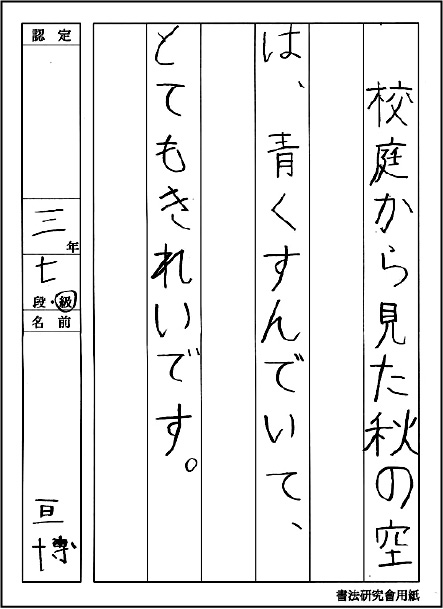 校庭から見た秋の空
は、青くすんでいて、
とてもきれいです。
認定
三年
七
段・級
名前
亘博
書法研究會用紙